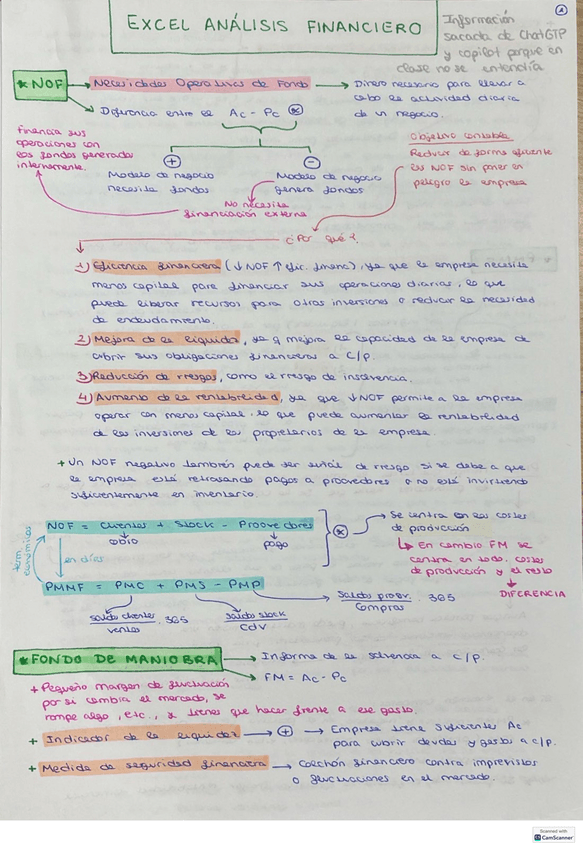 EXCEL ANÁLISIS FINANCIERO
Información
sacada de ChatGTP
y copilot porque en
clase no se entendía
* NOF → Necesidades Operativas de Fondo → Dinero necesario para llevar a
cabo la actividad diaria
de un negocio.
Diferencia entre el Ac - Pc *
Financia sus
operaciones con
los fondos generados
internamente.
+
Modelo de negocio
necesita fondos
-
Modelo de negocio
genera fondos
No necesita
financiación externa
Objetivo contable
Reducir de forma eficiente
las NOF sin poner en
peligro la empresa
¿Por qué?
1) Eficiencia financiera (↓ NOF ↑ efic. financ), ya que la empresa necesita
menos capital para financiar sus operaciones diarias, lo que
puede liberar recursos para otras inversiones o reducir la necesidad
de endeudamiento.
2) Mejora de la liquidez, ya q mejora la capacidad de la empresa de
cubrir sus obligaciones financieras a C/p.
3) Reducción de riesgos, como el riesgo de insolvencia.
4) Aumento de la rentabilidad, ya que ↓NOF permite a la empresa
operar con menos capital, lo que puede aumentar la rentabilidad
de las inversiones de los propietarios de la empresa.
+ Un NOF negativo también puede ser señal de riesgo si se debe a que
la empresa está retrasando pagos a proveedores o no está invirtiendo
suficientemente en inventario.
NOF = Clientes + Stock - Proovedores
cobro
pago
*
→ Se centra en los costes
de producción
↳ En cambio FM se
centra en todo, costes
de producción y el resto
↓
DIFERENCIA
term. económicos
en días
PMMF = PMC + PMS - PMP
saldo clientes / ventas . 365
saldo stock / Cdv
Saldo proov. / Compras . 365
* FONDO DE MANIOBRA → Informa de la solvencia a c/p.
→ FM = Ac - Pc
+ Pequeño margen de fluctuación
por si cambia el mercado, se
rompe algo, etc., y tienes que hacer frente a ese gasto.
+ Indicador de la liquidez → + → Empresa tiene suficientes Ac
para cubrir deudas y gastos a c/p.
+ Medida de seguridad financiera → Colchón financiero contra imprevistos
o fluctuaciones en el mercado.
Scanned with
CamScanner